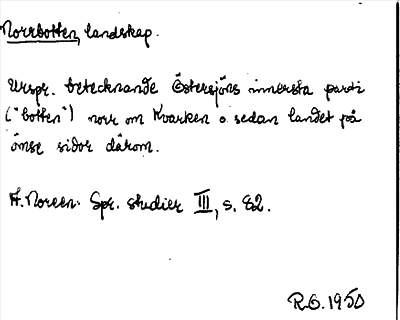 Norrbotten, landskap.
Urspr. betecknande Östersjöns innersta parti
("botten") norr om Kvarken o. sedan landet på
ömse sidor därom.
A. Noreen. Spr. studier III, s. 82.
R.O. 1950